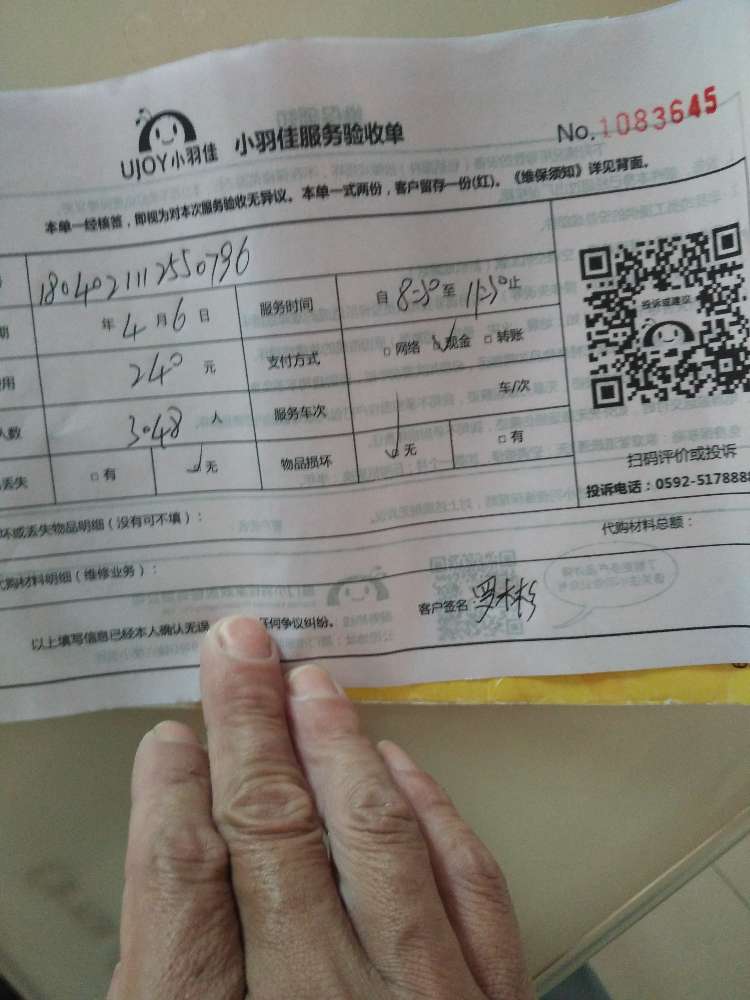 UJOY小羽佳 小羽佳服务验收单 No.1083645
本单一经核签，即视为对本次服务验收无异议。本单一式两份，客户留存一份(红)。《维保须知》详见背面。
1804021112550796
年4月6日 服务时间 自8:30至11:30止
投诉或建议
费用 240元 支付方式 □网络 □现金 □转账
人数 3048人 服务车次 车/次
丢失 □有 无 物品损坏 无 □有
扫码评价或投诉
投诉电话：0592-5178888
坏或丢失物品明细（没有可不填）： 代购材料总额：
代购材料明细（维修业务）：
以上填写信息已经本人确认无误 任何争议纠纷。 客户签名：罗彬彬